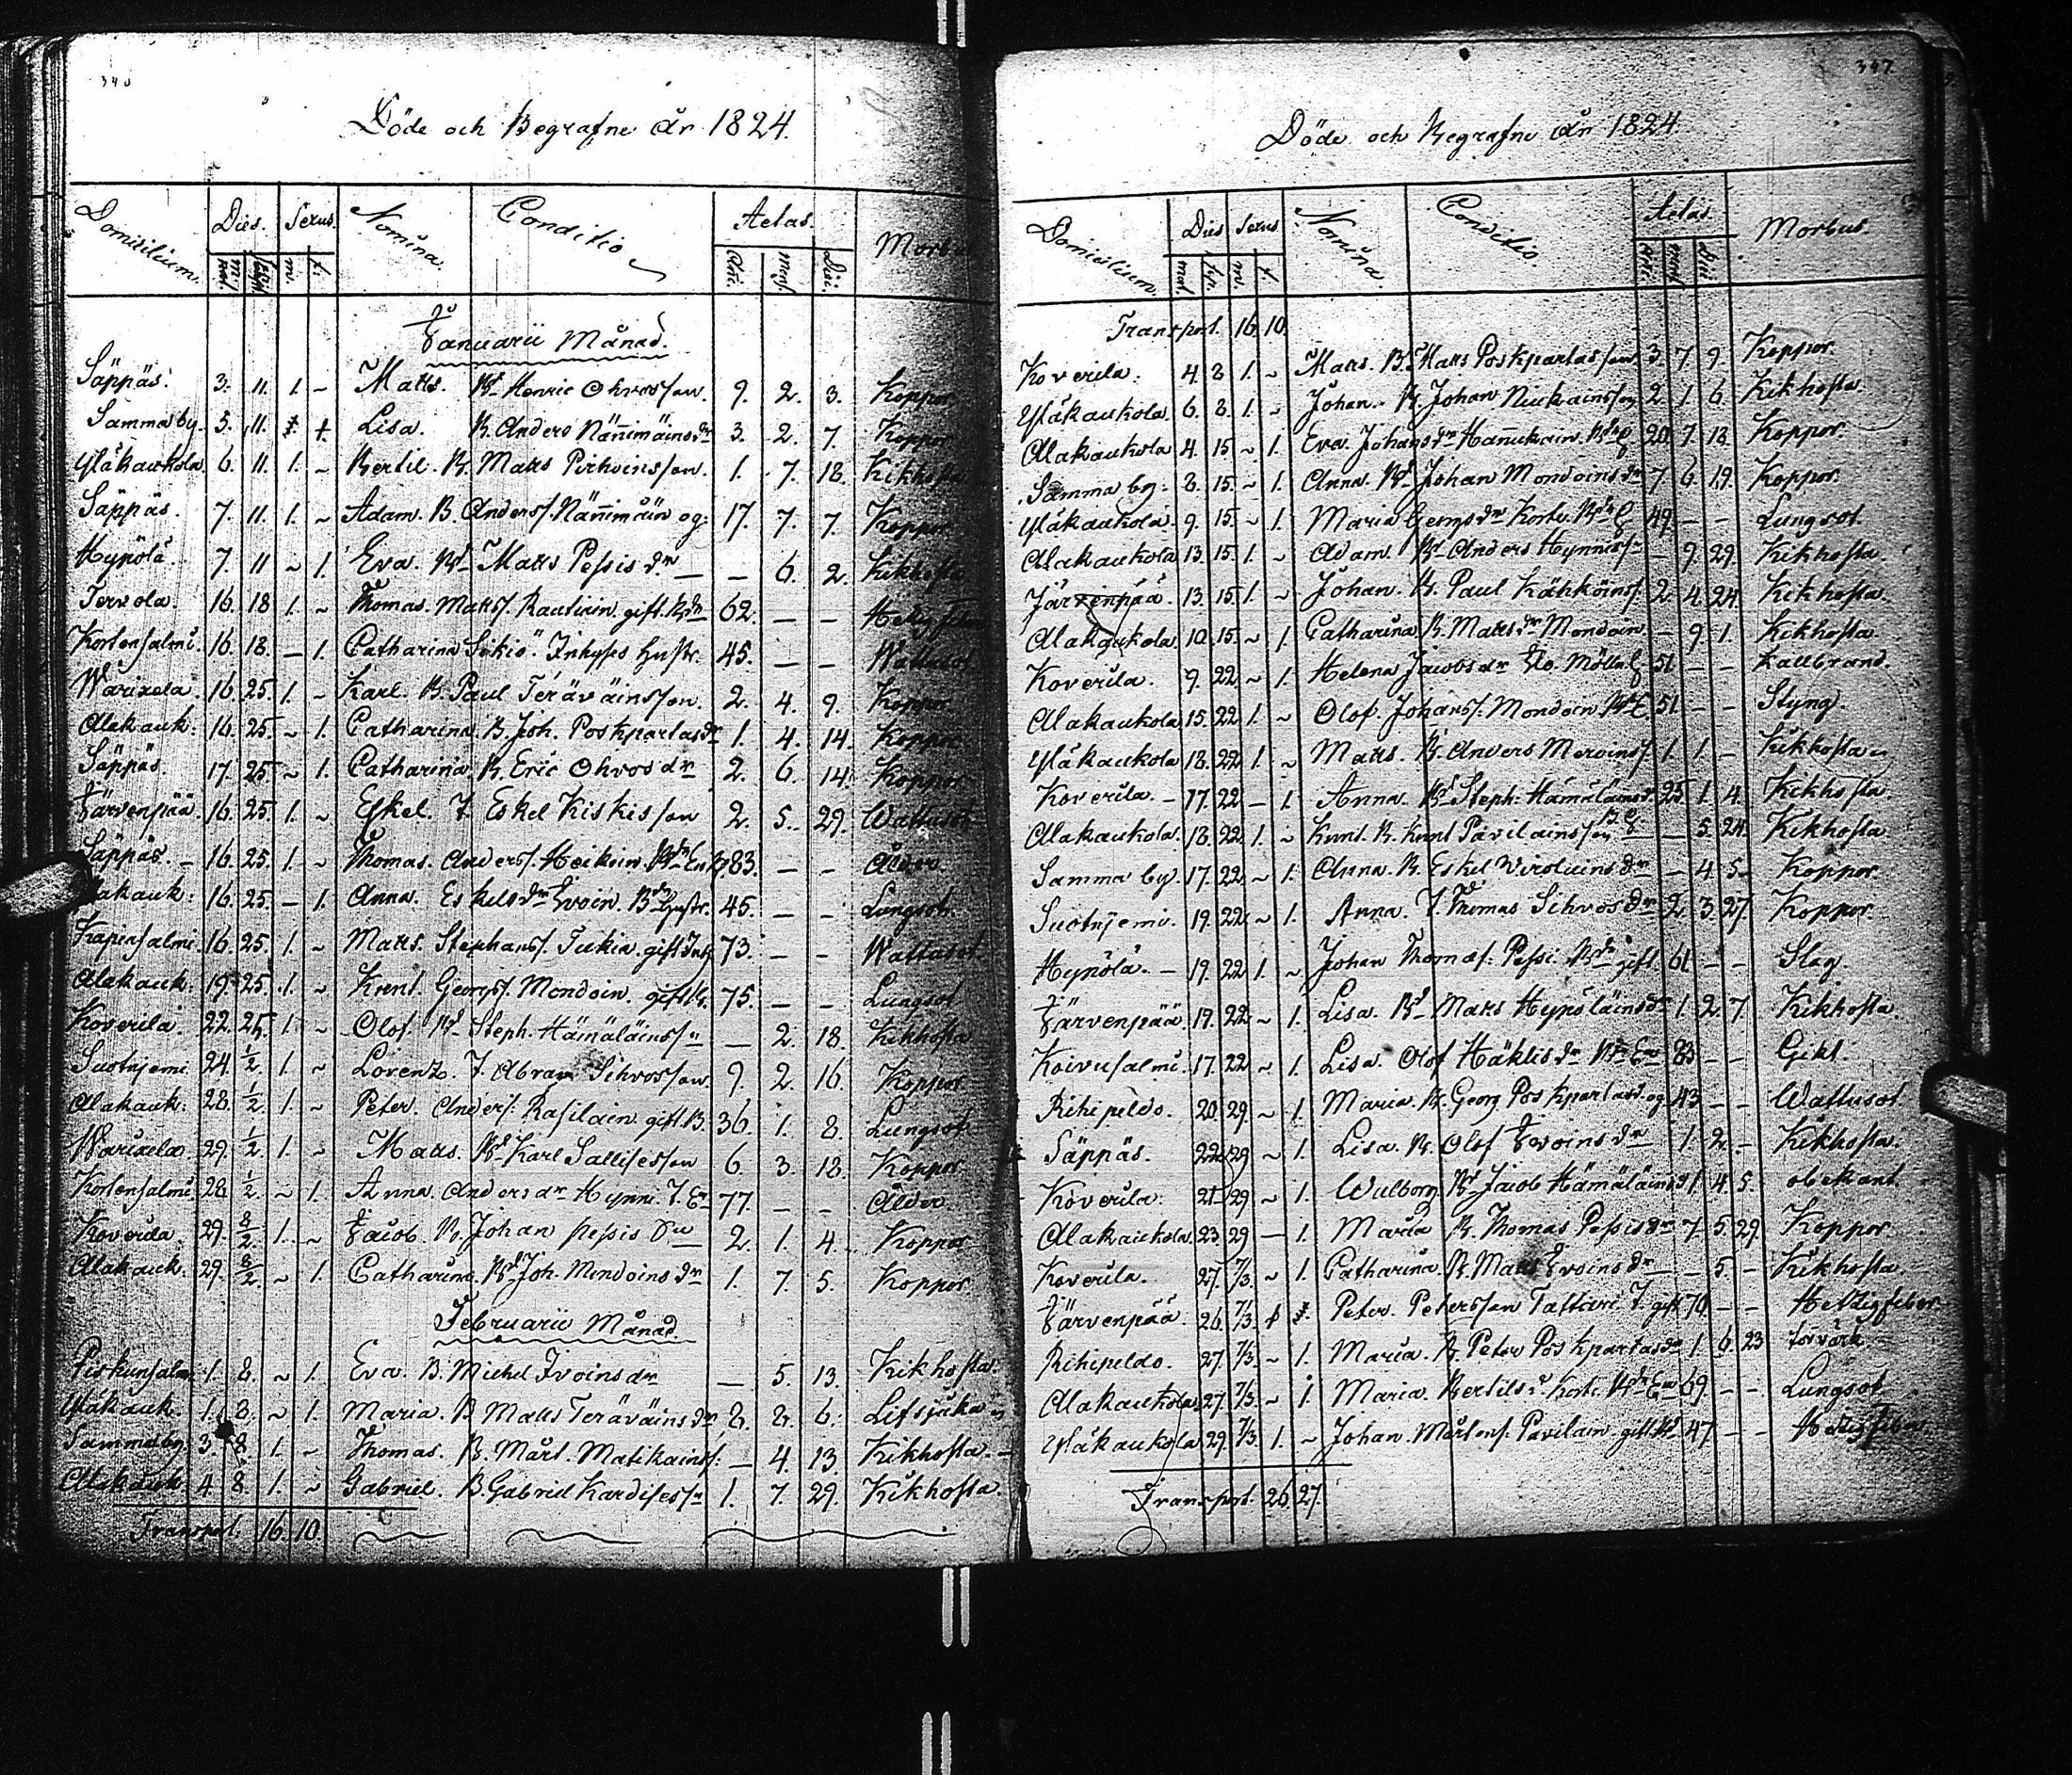 340
Döde och Begrafne år 1824.
Domicilium. Dies. Sexus. Nomina. Conditio Aetas. Morbus
m. f. An. mens. Die.
Januarii Månad.
Säppäs. 3. 11. 1. ~ Matts. Bd Henric Ohvosson. 9. 2. 3. Koppor
Samma by. 5. 11. Lisa. B. Anders Nänimäinsdr 3. 2. 7. Koppor
Yläkaukola. 6. 11. 1. ~ Bertil. B. Matts Pirhoinsson. 1. 7. 18. Kikhosta
Säppäs. 7. 11. 1. ~ Adam. B. Anderss. Nänimäin og: 17. 7. 7. Koppor
Hypölä. 7. 11 ~ 1. Eva. Bd Matts Pessis dr — — 6. 2. Kikhosta
Tervola. 16. 18 1. ~ Thomas. Matts. Rautiain. gift. Bdn 62. — —
Kortensalmi. 16. 18. — 1. Catharina Sikiö. Inhyses Hustr. 45. — — Wattusot
Warixela. 16. 25. 1. ~ Karl. B. Paul Teräväinsson. 2. 4. 9. Koppor
Alakauk: 16. 25. ~ 1. Catharina. B. Joh. Poskpartasdr 1. 4. 14. Koppor
Säppäs. 17. 25 ~ 1. Catharina. B. Eric Ohvosdr 2. 6. 14. Koppor
Järvenpää. 16. 25. 1. ~ Eskel. T. Eskel Kiskisson 2. 5. 29. Wattusot
Säppäs. — 16. 25. 1. ~ Thomas. Anderss. Heikoin. 83. — — Ålder
Alakauk: 16. 25. — 1. Anna. Eskelsdr Ivoin. Bdn Hustr. 45. — — Lungsot.
Kapinsalmi. 16. 25. 1. ~ Matts. Stephanss. Tukia. gift Inh 73. — — Wattusot.
Alakauk: 19. 25. 1. ~ Knut. Georgs. Mondoin. gift B. 75. — — Lungsot
Koverila. 22. 25. 1. ~ Olof. Bd Steph. Hämäläinssn — 2. 18. Kikhosta
Suotnjemi. 24. 1/2 1. ~ Lorenz. T. Abram Sihvosson. 9 2. 16. Koppor
Alakauk: 28. 1/2 1. ~ Peter. Anders. Rasilain. gift B. 36. 1. 8. Lungsot
Warixela. 29. 1/2 1. ~ Matts. Bd Karl Sallisesson 6. 3. 18. Koppor
Kortensalmi. 28. 1/2 ~ 1. Anna. Andersdr Hynni. T. En 77. — — Ålder
Koverila. 29. 8/2 1. ~ Jacob. B. Johan Pessis 2. 1. 4. Koppor
Alakauk. 29. 8/2 ~ 1. Catharina. Bd Joh. Mondoinsdr 1. 7. 5. Koppor
Februarii Månad.
1. 8. ~ 1. Eva. B. Michel Ivoinsdr — 5. 13. Kikhosta
Yläkauk. 1. 8. ~ 1. Maria. B Matts Teräväinsdr 2. 2. 6. Lifsjuka
Samma by. 3. 8. 1. ~ Thomas. B. Mårt. Matikainss. — 4. 13. Kikhosta. —
Alakauk. 4. 8. 1. ~ Gabriel. B. Gabriel Kardisessn 1. 7. 29. Kikhosta
Transport. 16. 10.
347.
Döde och Begrafne år 1824.
Domicilium. Dies Sexus Nomina. Conditio. Aetas. Morbus.
Transport. 16. 10.
Koverila. 4. 8. 1. ~ Matts. B. Matts Poskpartasson 3. 7. 9. Koppor.
Yläkaukola. 6. 8. 1. ~ Johan. B. Johan Niukainsson 2. 1. 6. Kikhosta.
Alakaukola 4. 15 ~ 1. Eva. Johansdr Hanukain. 20. 7. 18. Koppor.
Samma by. 8. 15. ~ 1. Anna. Bd Johan Mondoinsdr 7. 6. 19. Koppor.
Yläkaukola 9. 15. ~ 1. Maria Georgsdr Korte. 49. — — Lungsot.
Alakaukola 13. 15. 1. ~ Adam. Bd Anders Hynniss. — 9. 29. Kikhosta.
Järvenpää. 13. 15. 1. ~ Johan. B. Paul Kähköinss. 2. 4. 24. Kikhosta.
Alakaukola. 10. 15. ~ 1. Catharina. B. Mattsdr Mondoin — 9. 1. Kikhosta.
Koverila. 9. 22. ~ 1. Helena Jacobsdr 51. — — Kallbrand.
Alakaukola. 15. 22. 1. ~ Olof. Johanss. Mondoin 51. — — Styng.
Yläkaukola 18. 22. 1. ~ Matts. B. Anders Mervinss. 1. 1. — Kikhosta
Koverila. — 17. 22 — 1. Anna. Bd Steph: Hämäläinsd. 25. 1. 4. Kikhosta.
Alakaukola. 18. 22. 1. ~ Knut. B. Knut Pavilainsson — 5. 24. Kikhosta
Samma by. 17. 22 ~ 1. Anna. B. Eskel Viroluinsdr — 4. 5. Koppor
Suotnjemi. 19. 22. ~ 1. Anna. T. Thomas Sihvosdr 2. 3. 27. Koppor.
Hypölä. — 19. 22 1. ~ Johan Thomas. Pessi. Bdn gift 61. — — Slag.
Järvenpää 19. 22. ~ 1. Lisa. Bd Matts Hypöläinsdr 1. 2. 7. Kikhosta
Koivusalmi. 17. 22. ~ 1. Lisa. Olof Häklisdr 83. — — Gikt.
Rihipeldo. 20. 29. ~ 1. Maria. B. Georg Poskpartasd. og 43. — — Wattusot
Säppäs. 22. 29 ~ 1. Lisa. B. Olof Ivoinsdr 1. 2. — Kikhosta.
Koverila. 21. 29 ~ 1. Wulborg. Bd Jacob Hämäläins 1. 4. 5. obekant.
Alakaukola. 23. 29 — 1. Maria B. Thomas Pessisdr 7. 5. 29. Koppor
Koverila. 27. 7/3 ~ 1. Catharina. B. Matts Ivoinsdr — 5. — Kikhosta.
Järvenpää. 26. 7/3 Peter. Petersson Tattari. T. gift 70. — — Hetzigfeber
Rihipeldo. 27. 7/3 ~ 1. Maria. B. Peter Poskpartasdr 1. 6. 23
Alakaukola. 27. 7/3 ~ 1. Maria. Bertilsd. Korte. 69. — — Lungsot
Yläkaukola 29. 7/3 1. ~ Johan. Mårtens. Pavilain. gift. 47. — — Hetzigfeber
Transport. 26. 27.